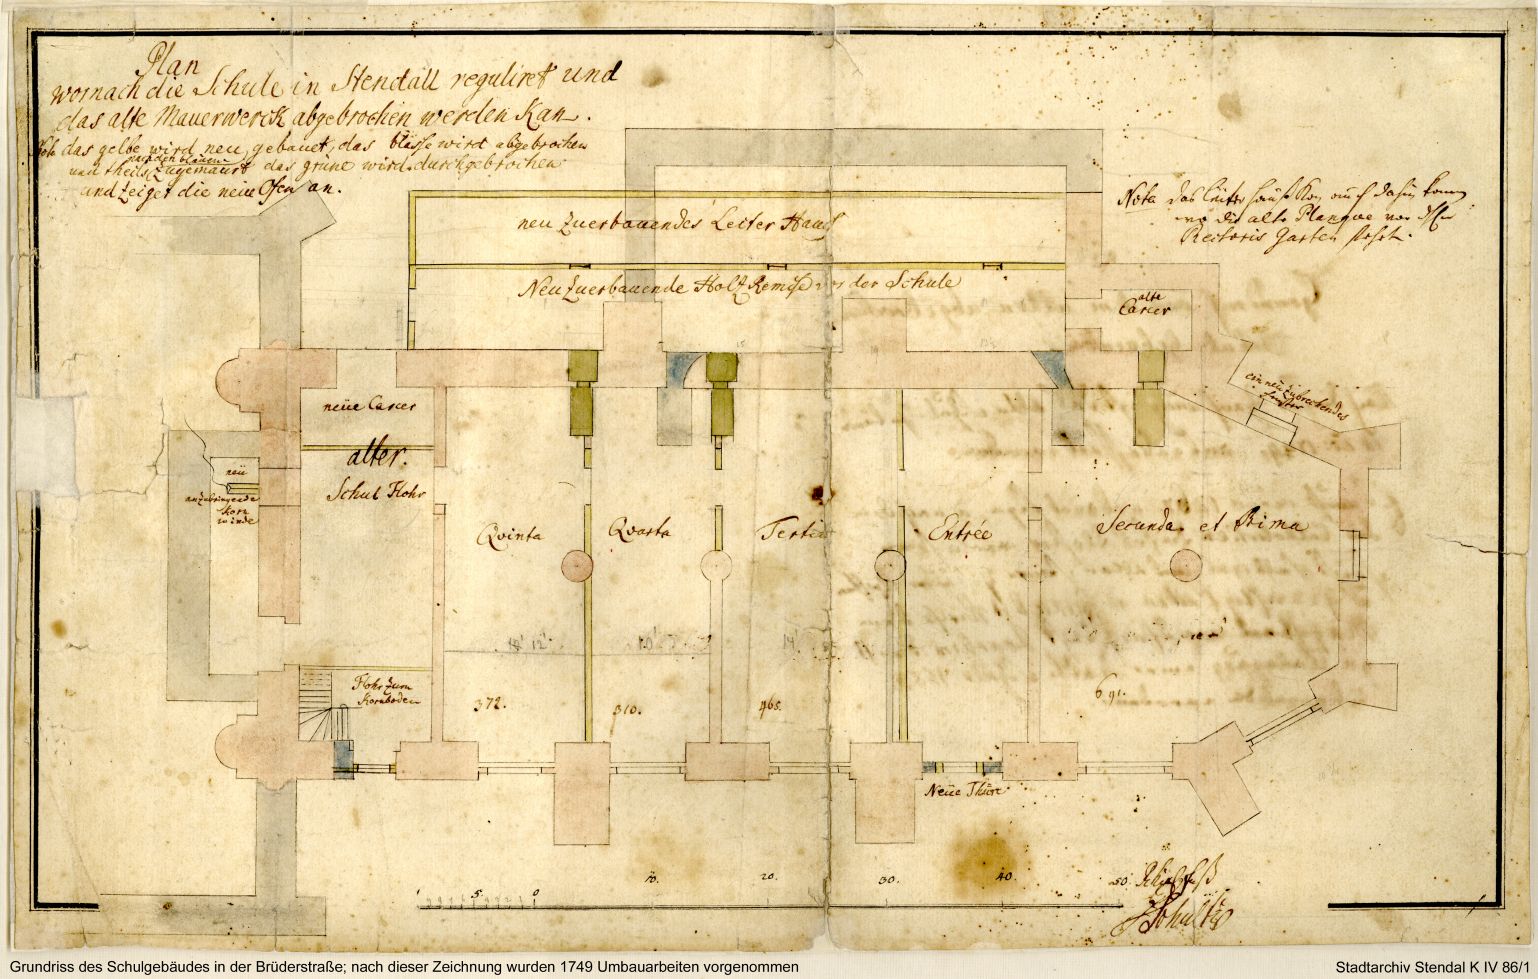 Plan
wornach die Schule in Stendall reguliret und
das alte Mauerwerck abgebrochen werden Kan.
Nota das gelbe wird neu gebauet, das blasse wird abgebrochen
und theils zugemaurt das grüne wird durchgebrochen
und zeiget die neue Ofen an.
neu zuerbauendes Leiter Hauß
Neu zuerbauende Holtz Remise der Schule
Nota das
die alte Planque vor
Rectoris Garten
alte
Carcer
ein neu zubrechendes
neüe Carcer
alter.
Schul Flohr
neü
anzubringende
Korn
winde
Qvinta
Qvarta
Tertia
Entrée
Secunda et Prima
Flohr zum
Kornboden
372.
310.
465.
691.
Neüe Thüre
5. 0 10. 20. 30. 40. 50.
Schultz
Grundriss des Schulgebäudes in der Brüderstraße; nach dieser Zeichnung wurden 1749 Umbauarbeiten vorgenommen
Stadtarchiv Stendal K IV 86/1